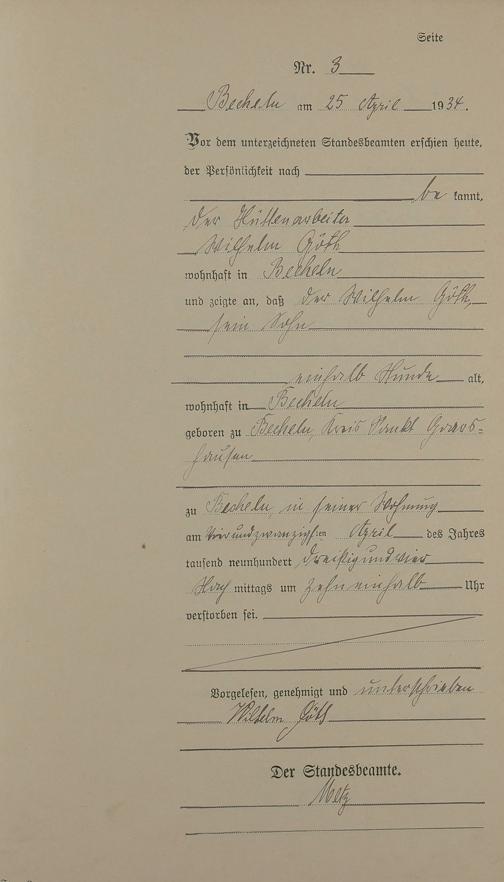 Seite
Nr. 3
Becheln am 25 April 1934.
Vor dem unterzeichneten Standesbeamten erschien heute,
der Persönlichkeit nach
be kannt,
der Hüttenarbeiter
Wilhelm Göth
wohnhaft in Becheln
und zeigte an, daß der Wilhelm Göth,
sein Sohn
einhalb Stunde alt,
wohnhaft in Becheln
geboren zu Becheln, Kreis Sankt Goars=
hausen
zu Becheln, in seiner Wohnung
am vierundzwanzigsten April des Jahres
tausend neunhundert dreißigundvier
Nach mittags um zehneinhalb Uhr
verstorben sei.
Vorgelesen, genehmigt und unterschrieben
Wilhelm Göth
Der Standesbeamte.
Metz